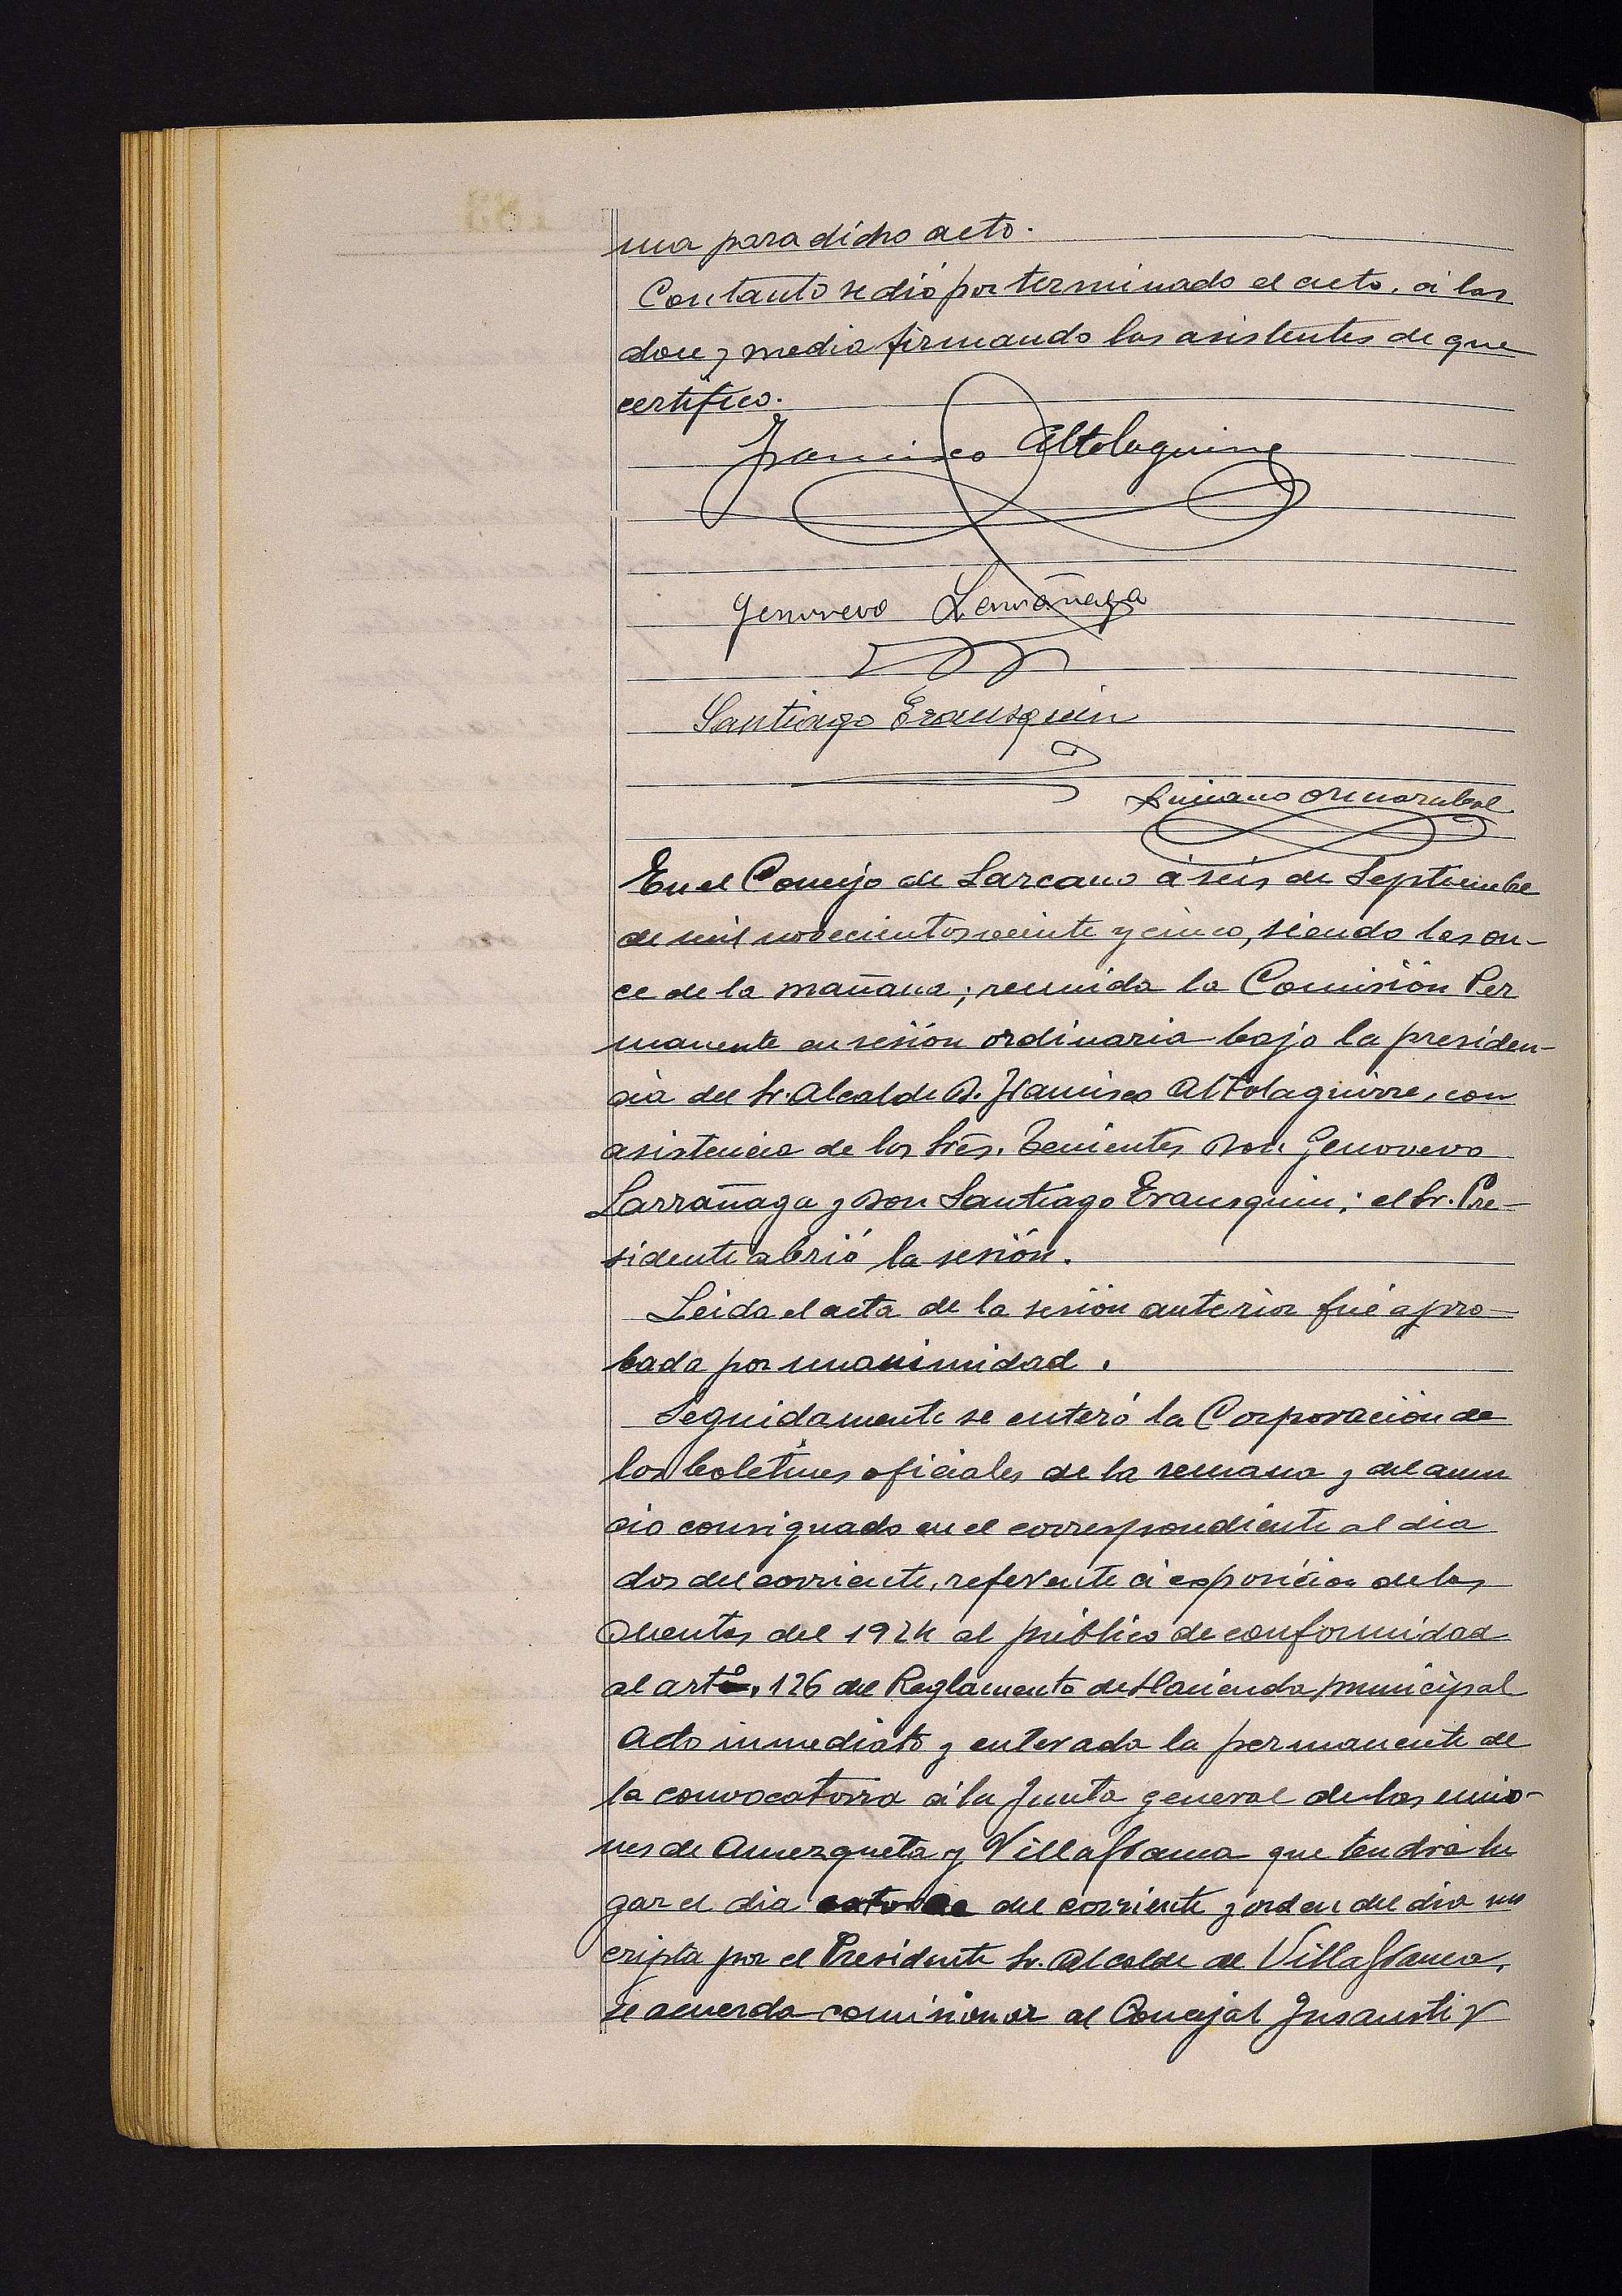 una para dicho acto.
Con tanto se dió por terminado el acto, á las
doce y media firmando los asistentes de que
certifico.
Francisco Altolaguirre
Genovevo Larrañaga
Santiago Erausquin
Luciano
En el Concejo de Lazcano á seis de Septiembre
de mil novecientos veinte y cinco, siendo las on-
ce de la mañana; reunida la Comisión Per
manente en sesión ordinaria bajo la presiden-
cia del Sr. Alcalde D. Francisco Altolaguirre, con
asistencia de los Srēs. Tenientes Don Genovevo
Larrañaga y Don Santiago Erausquin; el Sr. Pre-
sidente abrió la sesión.
Leida el acta de la sesión anterior fué apro-
bada por unanimidad.
Seguidamente se enteró la Corporación de
los boletines oficiales de la semana y del anun
cio consignado en el correspondiente al dia
dos del corriente, referente á exposición de las
Cuentas del 1924 al público de conformidad
al artº. 126 del Reglamento de Hacienda municipal
Acto inmediato y enterada la permanente de
la convocatoria á la Junta general de las unio-
nes de Amezqueta y Villafranca que tendrá lu
gar el dia catorce del corriente y orden del dia sus
cripta por el Presidente Sr. Alcalde de Villafranca,
se acuerda comisionar al Concejal Insausti y